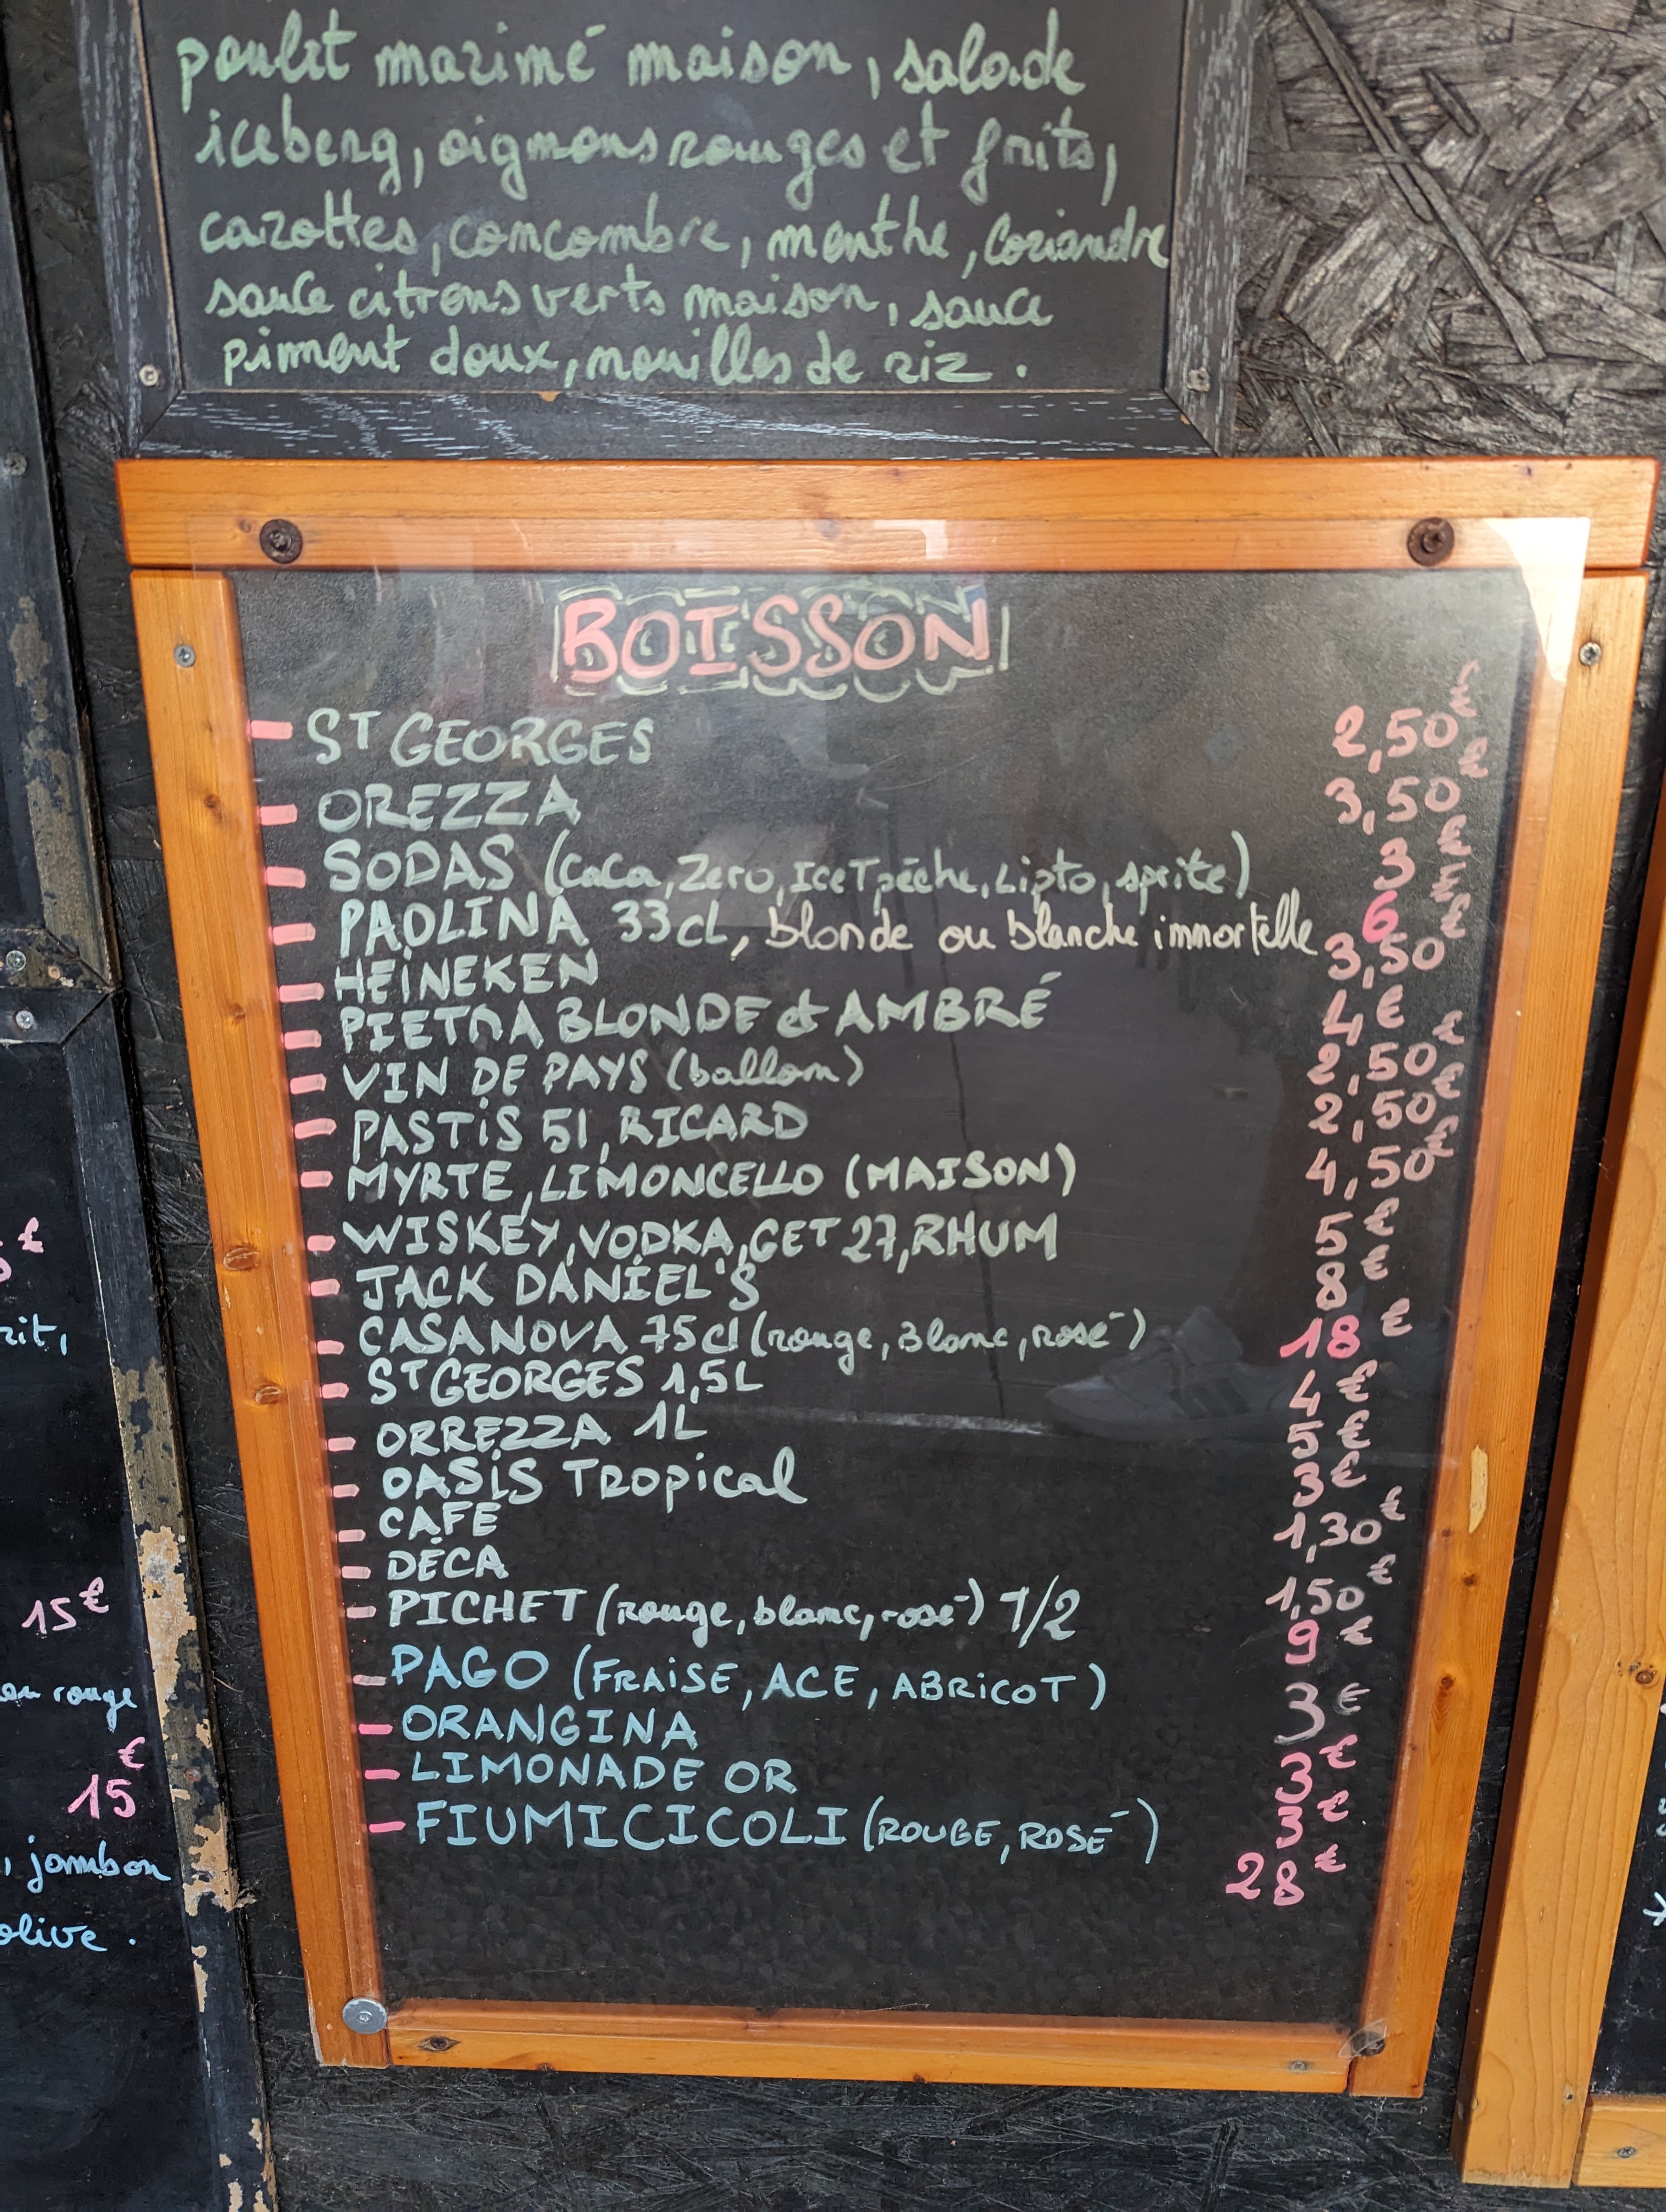 poulet mariné maison, salade
iceberg, oignons rouges et frits,
carottes, concombre, menthe, coriandre
sauce citrons verts maison, sauce
piment doux, nouilles de riz.
BOISSON
- ST GEORGES 2,50€
- OREZZA 3,50€
- SODAS (CoCa, Zero, IceTpêche, Lipto, sprite) 3€
- PAOLINA 33cL, blonde ou blanche immortelle 6€
- HEINEKEN 3,50€
- PIETRA BLONDE et AMBRÉ 4€
- VIN DE PAYS (ballon) 2,50€
- PASTIS 51, RICARD 2,50€
- MYRTE, LIMONCELLO (MAISON) 4,50€
- WISKEY, VODKA, GET 27, RHUM 5€
- JACK DANIEL'S 8€
- CASANOVA 75cl (rouge, Blanc, rosé) 18€
- ST GEORGES 1,5L 4€
- ORREZZA 1L 5€
- OASIS TROpical 3€
- CAFE 1,30€
- DÉCA 1,50€
- PICHET (rouge, blanc, rosé) 1/2 9€
- PAGO (FRAISE, ACE, ABRICOT) 3€
- ORANGINA 3€
- LIMONADE OR 3€
- FIUMICICOLI (ROUGE, ROSÉ) 28€
€
rit,
15€
en rouge
15€
, jambon
olive.